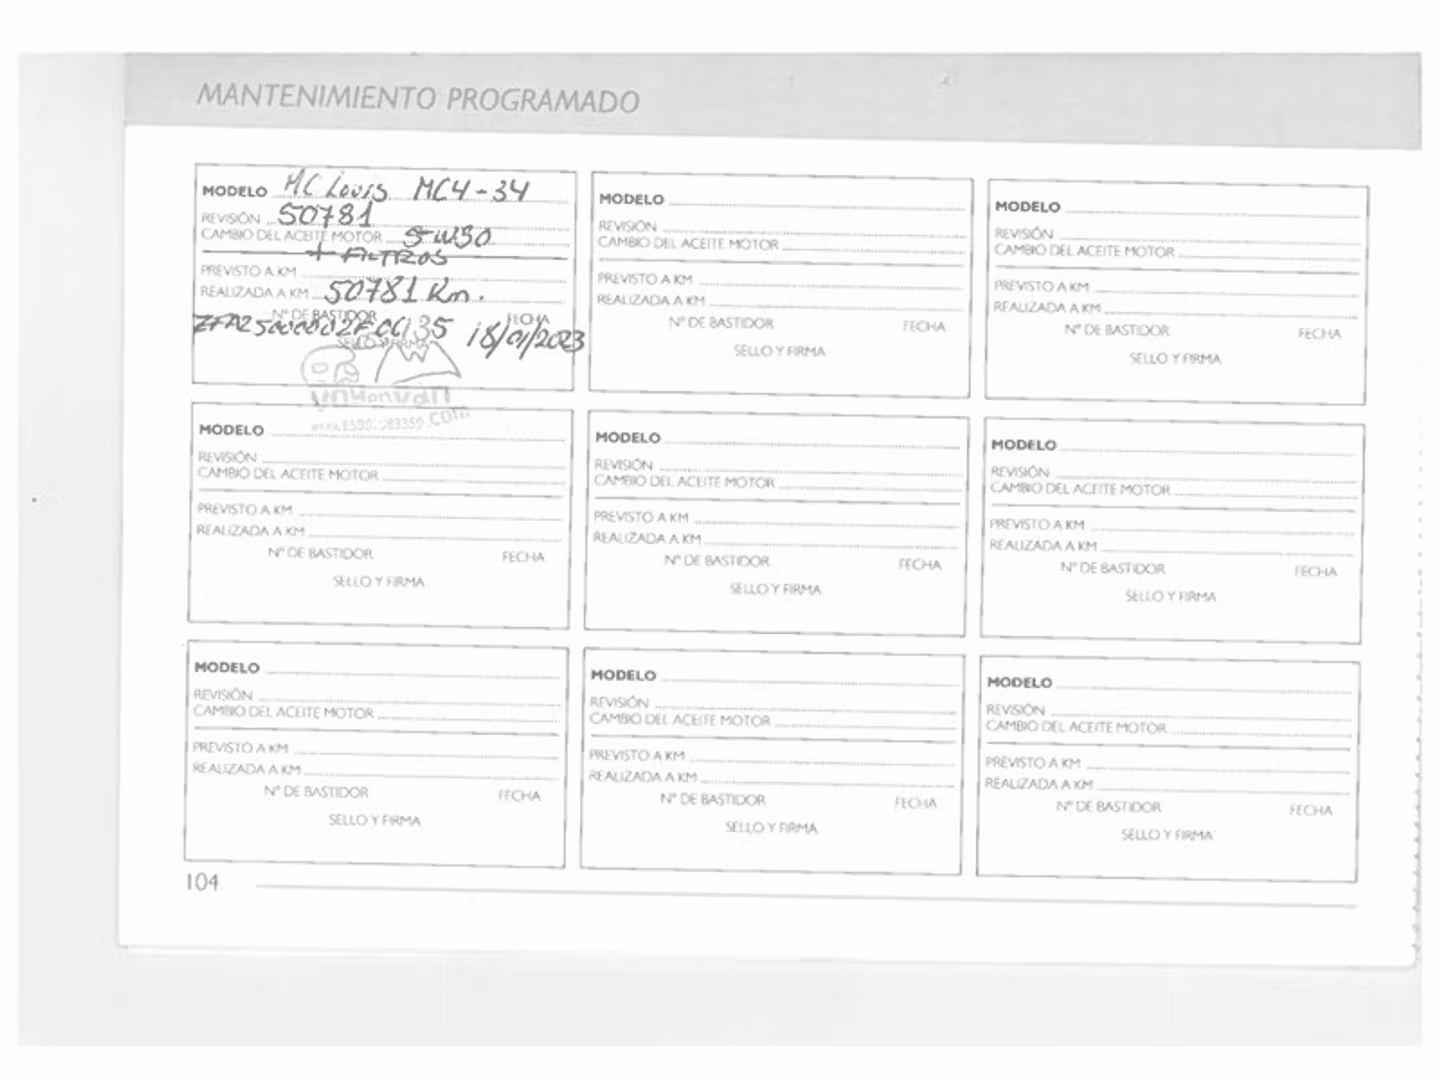 MANTENIMIENTO PROGRAMADO
MODELO MC Louis MC4-34
REVISIÓN 50781
CAMBIO DEL ACEITE MOTOR 5W30
+ FILTROS
PREVISTO A KM
REALIZADA A KM 50781 Km.
Nº DE BASTIDOR FECHA
18/01/2023
SELLO Y FIRMA
ynHonVan
.com
MODELO
REVISIÓN
CAMBIO DEL ACEITE MOTOR
PREVISTO A KM
REALIZADA A KM
Nº DE BASTIDOR FECHA
SELLO Y FIRMA
MODELO
REVISIÓN
CAMBIO DEL ACEITE MOTOR
PREVISTO A KM
REALIZADA A KM
Nº DE BASTIDOR FECHA
SELLO Y FIRMA
MODELO
REVISIÓN
CAMBIO DEL ACEITE MOTOR
PREVISTO A KM
REALIZADA A KM
Nº DE BASTIDOR FECHA
SELLO Y FIRMA
MODELO
REVISIÓN
CAMBIO DEL ACEITE MOTOR
PREVISTO A KM
REALIZADA A KM
Nº DE BASTIDOR FECHA
SELLO Y FIRMA
MODELO
REVISIÓN
CAMBIO DEL ACEITE MOTOR
PREVISTO A KM
REALIZADA A KM
Nº DE BASTIDOR FECHA
SELLO Y FIRMA
MODELO
REVISIÓN
CAMBIO DEL ACEITE MOTOR
PREVISTO A KM
REALIZADA A KM
Nº DE BASTIDOR FECHA
SELLO Y FIRMA
MODELO
REVISIÓN
CAMBIO DEL ACEITE MOTOR
PREVISTO A KM
REALIZADA A KM
Nº DE BASTIDOR FECHA
SELLO Y FIRMA
MODELO
REVISIÓN
CAMBIO DEL ACEITE MOTOR
PREVISTO A KM
REALIZADA A KM
Nº DE BASTIDOR FECHA
SELLO Y FIRMA
104